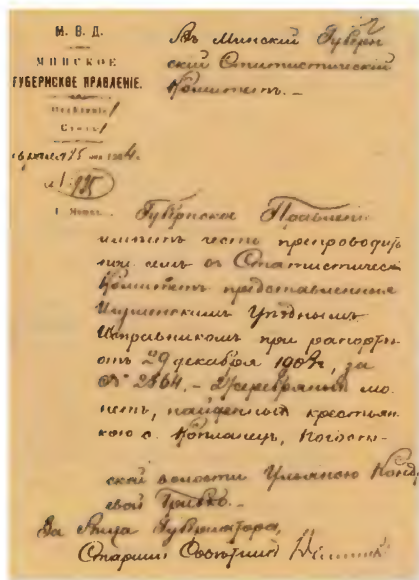 М. В. Д.
МИНСКОЕ
ГУБЕРНСКОЕ ПРАВЛЕНІЕ.
Отдѣленіе 1
Столъ 1
15 дня 1904 г.
№ 195
г. Минскъ.
Въ Минскій Губерн
скій Статистическій
Комитетъ. —
Губернское Правленіе
имѣетъ честь препроводить
при семъ въ Статистическій
Комитетъ представленныя
Игуменскимъ Уѣзднымъ
Исправникомъ при рапортѣ
отъ 29 декабря 190 г., за
№ 2864. — серебряныя мо
нетъ, найденныя крестьян
кою с. Копланецъ, Погости-
ской волости Ульяною Конд
евой
За Вице Губернатора,
Старшій Совѣтникъ